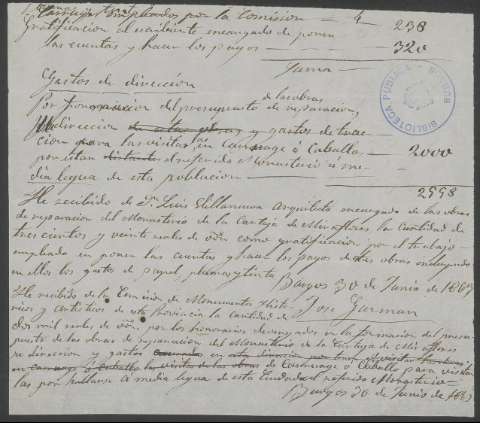 Carruajes empleados por la Comision — 4 — 238
Gratificacion al escribiente encargado de poner
las cuentas y hacer los pagos — 320
Suma
Gastos de direccion
de las obras
Por formacion del presupuesto de reparacion,
direccion de estas obras y gastos de trac-
cion para las visitas, en carruage ó Caballo
por estar distante el referido Monasterio á me-
dia legua de esta poblacion — 2000
2558
He recibido de Dn. Luis Villanueva Arquitecto encargado de las obras
de reparacion del Monasterio de la Cartuja de Miraflores la Cantidad de
trescientos y veinte reales de von. como gratificacion por el trabajo
empleado en poner las cuentas y hacer los pagos de las obras incluyendo
en ellos los gastos de papel, plumas y tinta
Burgos 30 de Junio de 1867
Jose Guzman
He recibido de la Comision de Monumentos histó-
ricos y artisticos de esta provincia la Cantidad de
dos mil reales de von. por los honorarios devengados en la formacion del presu-
puesto de las obras de reparacion del Monasterio de la Cartuja de Miraflores
su direccion y gastos en
en carruage ó Caballo las visitas de las obras de Carruage ó Caballo para visitar
las por hallarse á media legua de esta Ciudad el referido Monasterio
Burgos 30 de Junio de 1867
BIBLIOTECA PUBLICA BURGOS